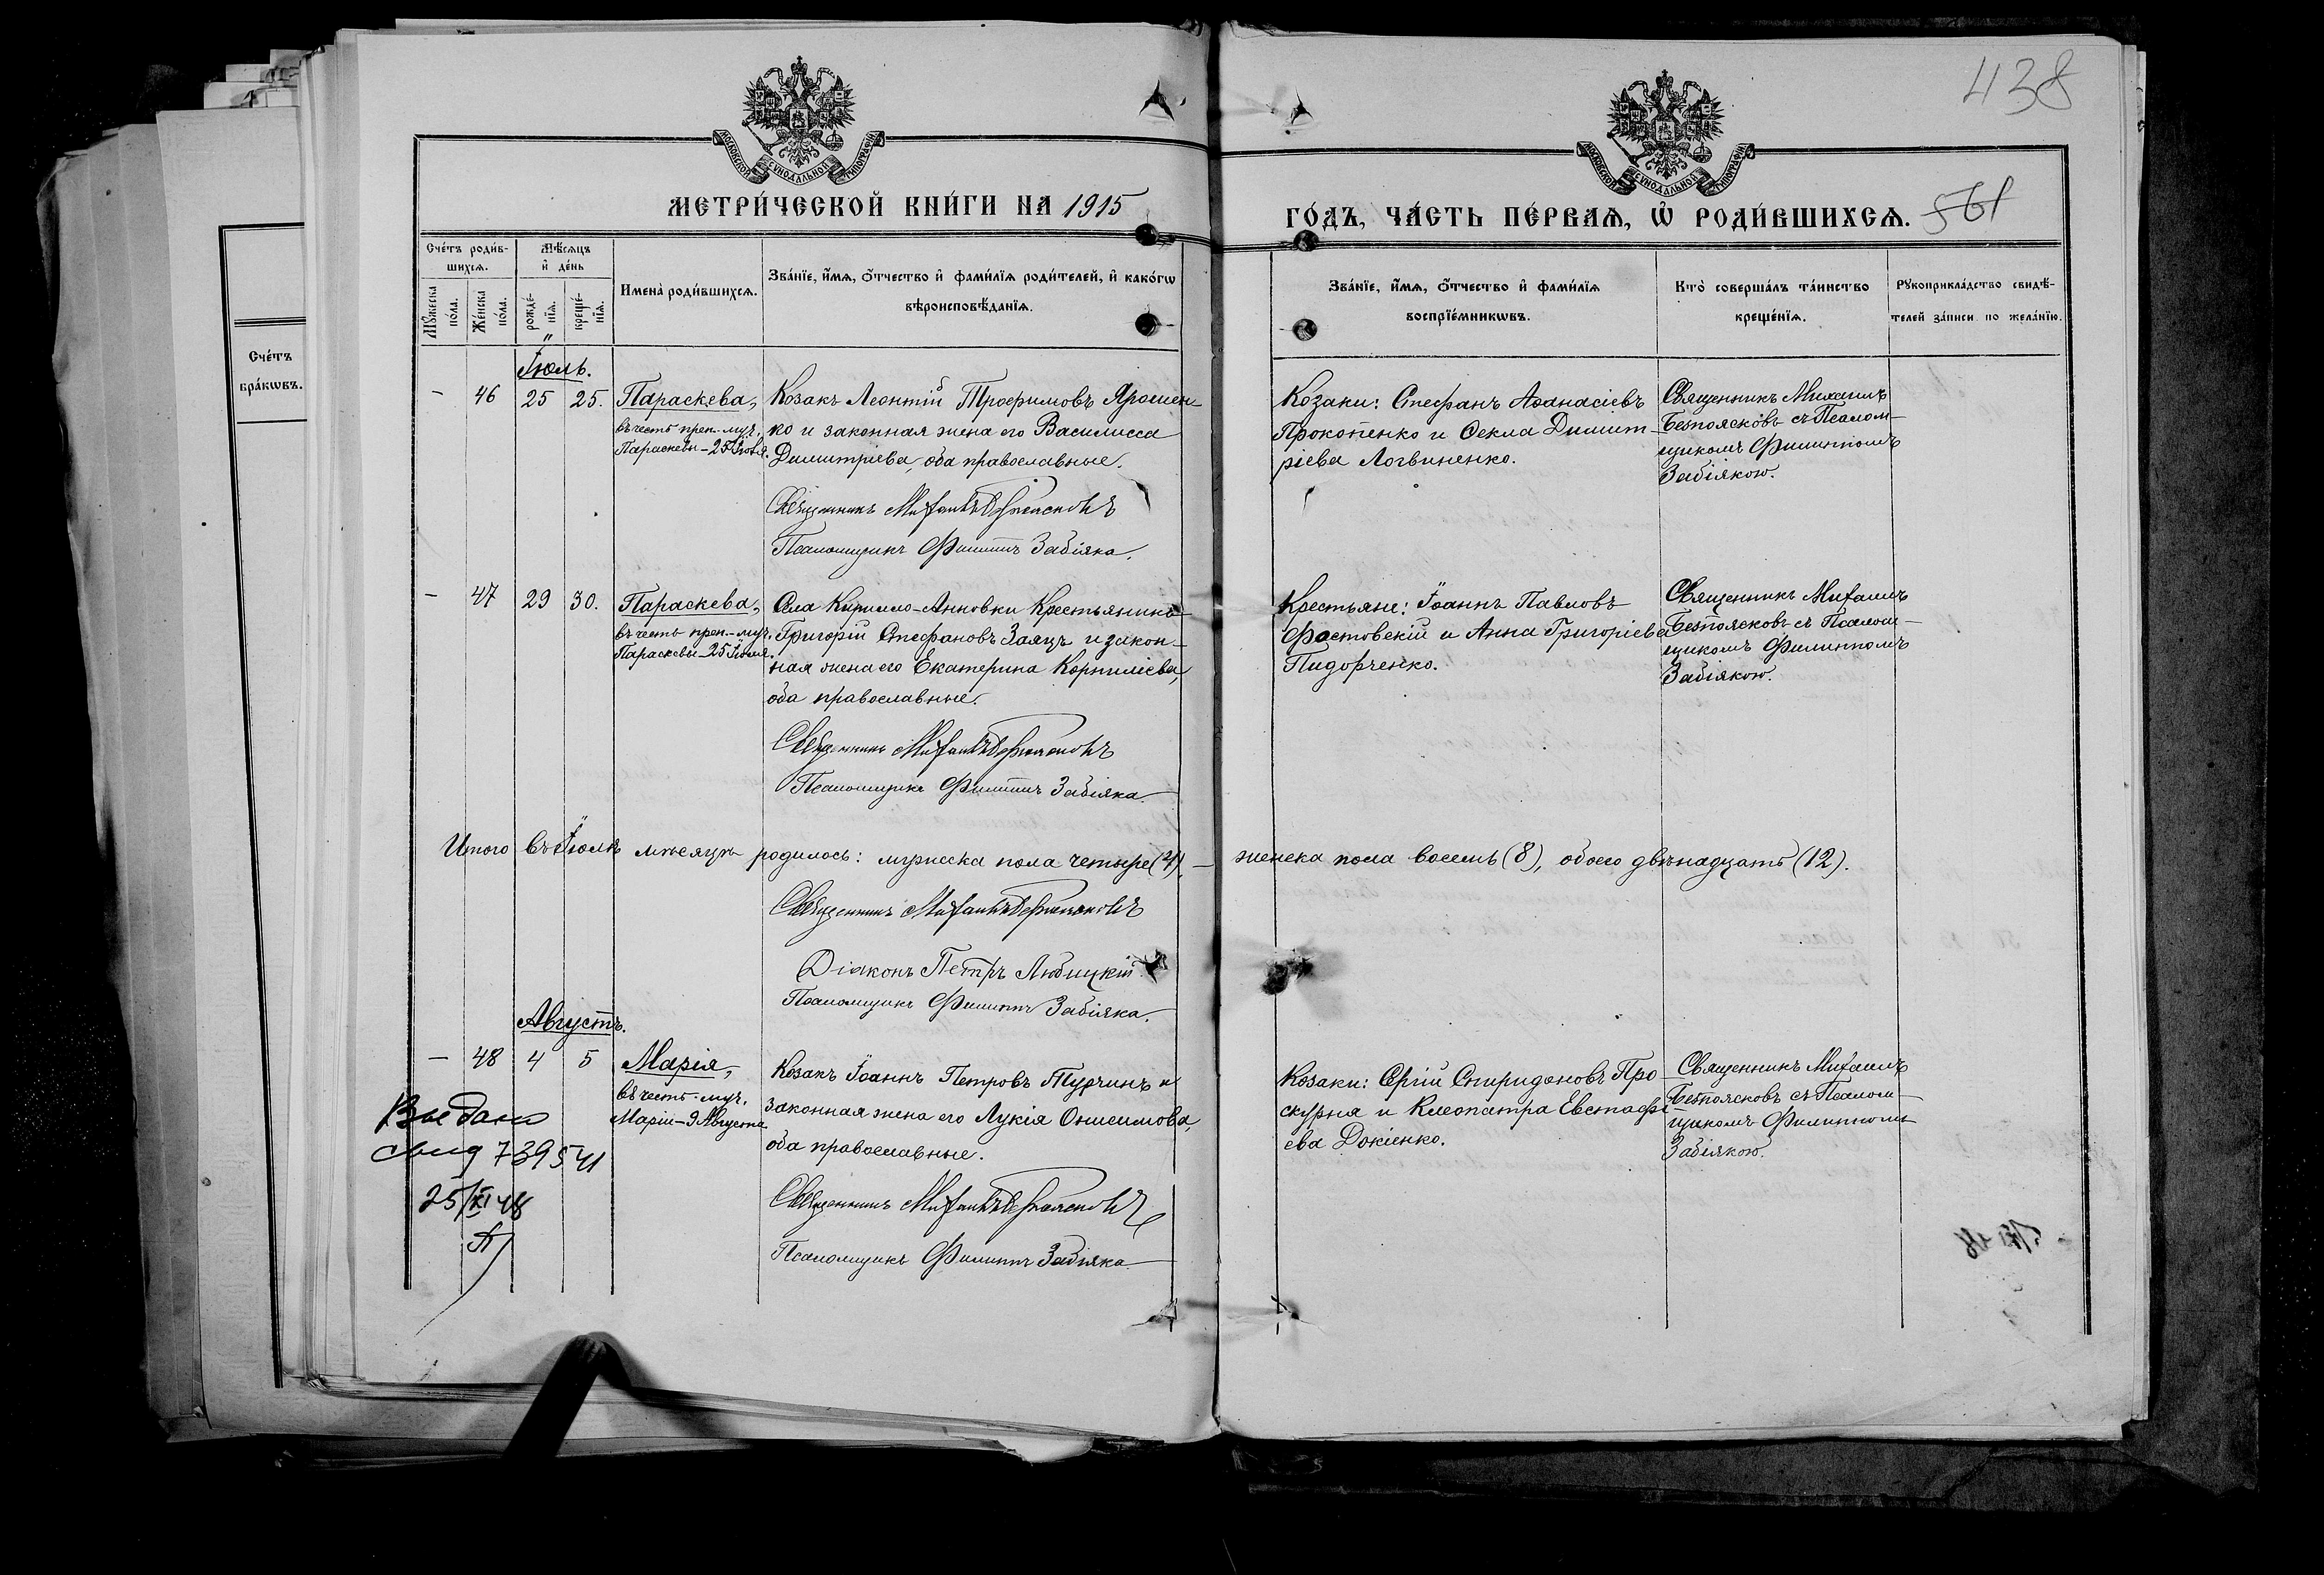 438
МОСКОВСКОЙ СѴНОДАЛЬНОЙ ТИПОГРАФІИ
МОСКОВСКОЙ СѴНОДАЛЬНОЙ ТИПОГРАФІИ
МЕТРИ́ЧЕСКОЙ КНИ́ГИ НА 1915
ГО́ДЪ, ЧА́СТЬ ПЕ́РВАѦ, Ѽ РОДИ́ВШИХСѦ. 561
Сче́тъ
бра́кѡвъ.
Сче́тъ роди́в-
шихсѧ.
Мꙋ́жеска по́ла.
Же́нска по́ла.
Мѣ́сѧцъ
и҆ де́нь
рожде́-
нїѧ.
креще́-
нїѧ.
Имена̀ роди́вшихсѧ.
Зва́нїе, и҆́мѧ, ѻ҆́тчество и҆ фами́лїѧ роди́телей, и҆ како́гѡ
вѣроисповѣ́данїѧ.
Зва́нїе, и҆́мѧ, ѻ҆́тчество и҆ фами́лїѧ
воспрїе́мникѡвъ.
Кто̀ соверша́лъ та́инство
креще́нїѧ.
Рꙋкоприкла́дство свидѣ́-
телей за́писи по жела́нїю.
Іюль.
— 46 25 25.
Параскева,
въ честь преп.-муч.
Параскевы - 25 Іюля.
Козакъ Леонтій Трофимовъ Ярошен
ко и законная жена его Василисса
Димитріева, оба православные.
Священникъ Михаилъ Безпоясковъ
Псаломщикъ Филиппъ Забіяка.
Козаки: Стефанъ Аѳанасіевъ
Прокопенко и Ѳекла Димит-
ріева Логвиненко.
Священникъ Михаилъ
Безпоясковъ съ Псалом-
щикомъ Филиппомъ
Забіякою.
— 47 29 30.
Параскева,
въ честь преп.-муч.
Параскевы - 25 Іюля.
Села Кирилло-Анновки Крестьянинъ
Григорій Стефановъ Заяцъ и закон-
ная жена его Екатерина Корниліева,
оба православные.
Священникъ Михаилъ Безпоясковъ
Псаломщикъ Филиппъ Забіяка
Крестьяне: Іоаннъ Павловъ
Фастовскій и Анна Григоріева
Пидорченко.
Священникъ Михаилъ
Безпоясковъ съ Псалом-
щикомъ Филиппомъ
Забіякою.
Итого въ Іюлѣ мѣсяцѣ родилось: мужеска пола четыре (4), — женска пола восемь (8), обоего двѣнадцать (12).
Священникъ Михаилъ Безпоясковъ
Діаконъ Петръ Любицкій
Псаломщикъ Филиппъ Забіяка.
Августъ.
— 48 4 5
Марія,
въ честь муч.
Маріи - 9 Августа
Козакъ Іоаннъ Петровъ Турчинъ и
законная жена его Лукія Онисимова,
оба православные.
Священникъ Михаилъ Безпоясковъ
Псаломщикъ Филиппъ Забіяка
Козаки: Сергій Спиридоновъ Про
скурня и Клеопатра Евстафі-
ева Докіенко.
Священникъ Михаилъ
Безпоясковъ съ Псалом-
щикомъ Филиппомъ
Забіякою.
Выдано
свид 739541
25/XI 48